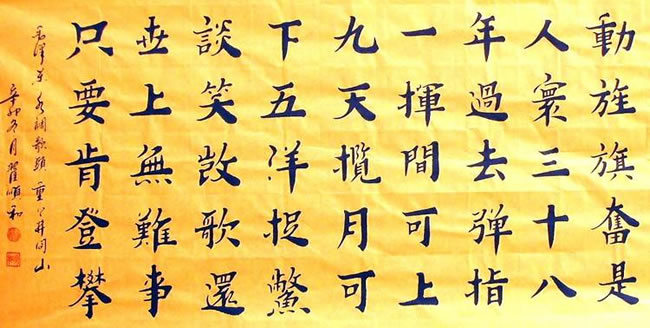 動旌旗奮是
人寰三十八
年過去彈指
一揮間可上
九天攬月可
下五洋捉鱉
談笑凱歌還
世上無難事
只要肯登攀
毛澤東水調歌頭重上井岡山
辛卯冬月翟順和